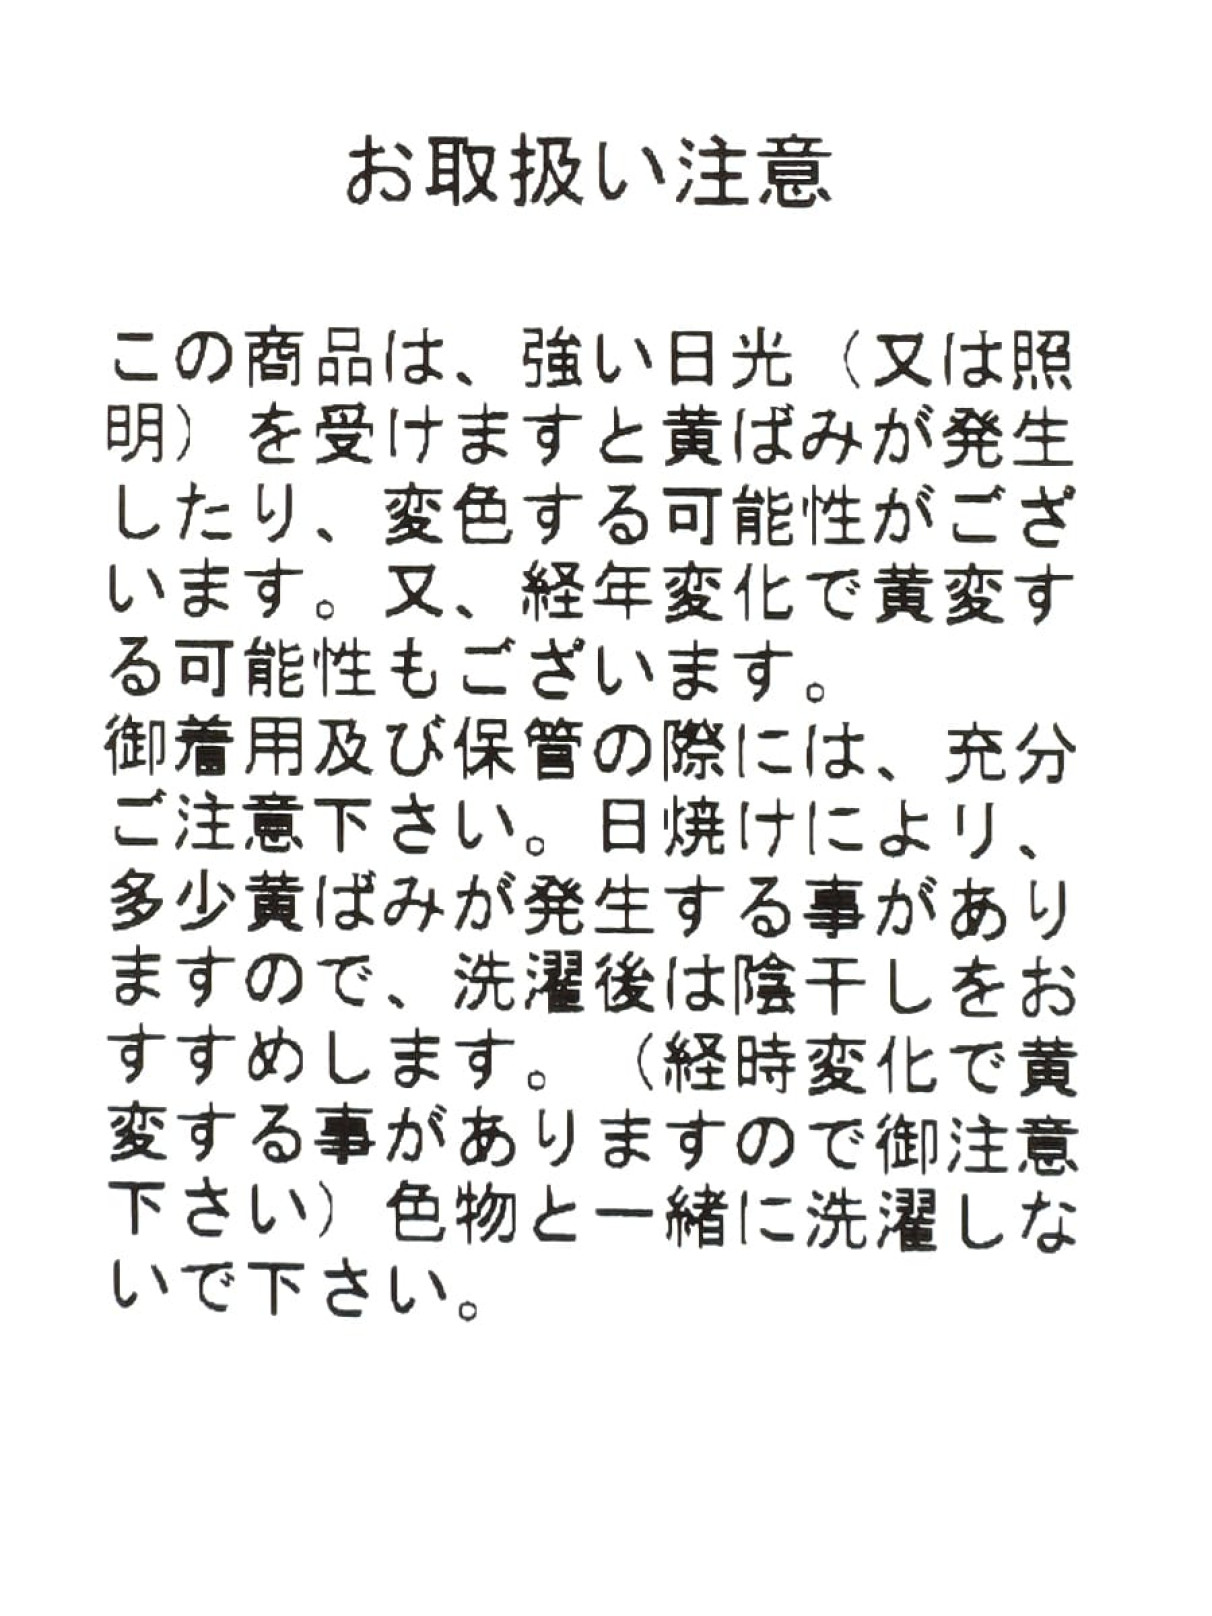 お取扱い注意
この商品は、強い日光（又は照
明）を受けますと黄ばみが発生
したり、変色する可能性がござ
います。又、経年変化で黄変す
る可能性もございます。
御着用及び保管の際には、充分
ご注意下さい。日焼けにより、
多少黄ばみが発生する事があり
ますので、洗濯後は陰干しをお
すすめします。（経時変化で黄
変する事がありますので御注意
下さい）色物と一緒に洗濯しな
いで下さい。